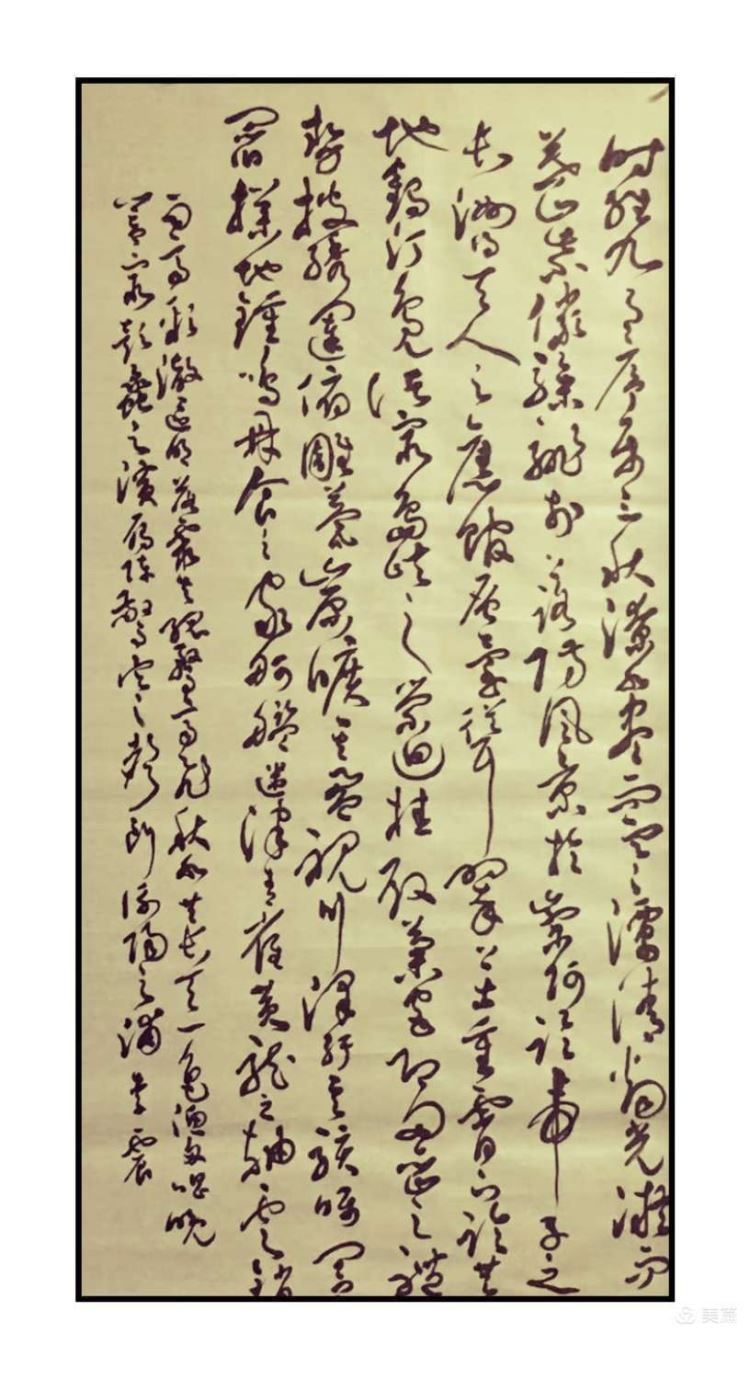 时维九月序属三秋潦水尽而寒潭清烟光凝而
暮山紫俨骖騑於上路访风景於崇阿临帝子之
长洲得天人之旧馆层峦耸翠上出重霄下临无
地鹤汀凫渚穷岛屿之萦迴桂殿兰宫即冈峦之体
势披绣闼俯雕甍山原旷其盈视川泽纡其骇瞩闾
阎扑地钟鸣鼎食之家舸舰迷津青雀黄龙之舳云销
雨霁彩彻区明落霞与孤鹜齐飞秋水共长天一色渔舟唱晚
响穷彭蠡之滨雁阵惊寒声断衡阳之浦 震
美篇